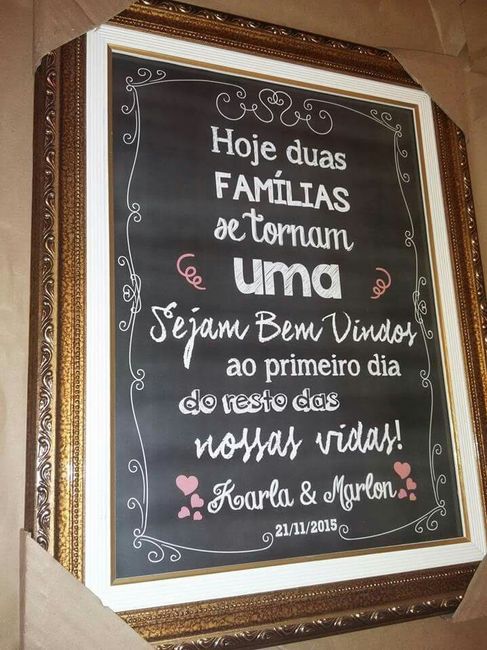 Hoje duas
FAMÍLIAS
se tornam
uma
Sejam Bem Vindos
ao primeiro dia
do resto das
nossas vidas!
Karla & Marlon
21/11/2015